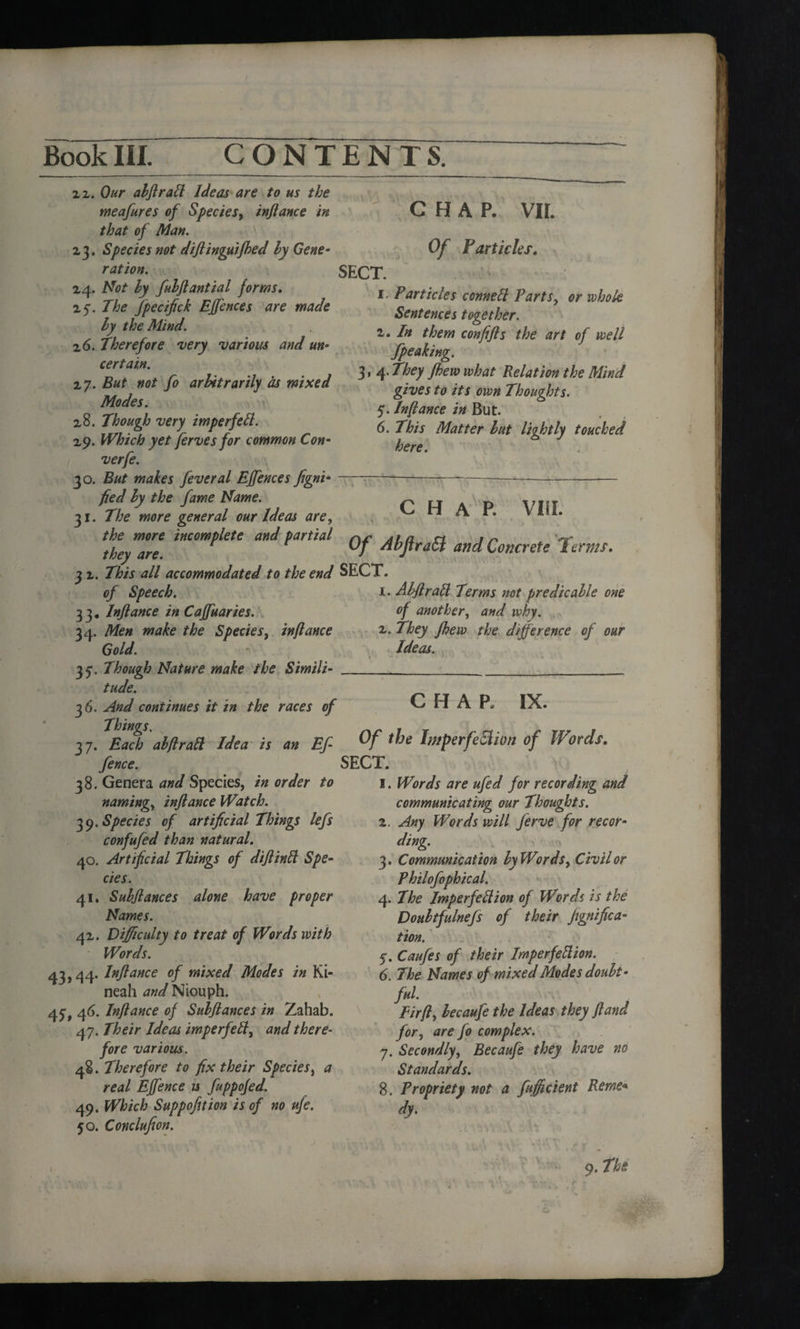 Book III. CONTENTS.
22. Our abſtract Ideas are to us the
meaſures of Species, inſtance in
that of Man.
23. Species not diſtinguiſhed by Gene-
ration.
24. Not by ſubſtantial forms.
25. The ſpecifick Eſſences are made
by the Mind.
26. Therefore very various and un-
certain.
27. But not ſo arbitrarily as mixed
Modes.
28. Though very imperfect.
29. Which yet ſerves for common Con-
verſe.
30. But makes ſeveral Eſſences ſigni-
fied by the ſame Name.
31. The more general our Ideas are,
the more incomplete and partial
they are.
32. This all accommodated to the end
of Speech.
33. Inſtance in Caſſuaries.
34. Men make the Species, inſtance
Gold.
35. Though Nature make the Simili-
tude.
36. And continues it in the races of
Things.
37. Each abſtract Idea is an Eſ-
ſence.
38. Genera and Species, in order to
naming, inſtance Watch.
39. Species of artificial Things leſs
confuſed than natural.
40. Artificial Things of diſtinct Spe-
cies.
41. Subſtances alone have proper
Names.
42. Difficulty to treat of Words with
Words.
43, 44. Inſtance of mixed Modes in Ki-
neah and Niouph.
45, 46. Inſtance of Subſtances in Zahab.
47. Their Ideas imperfect, and there-
fore various.
48. Therefore to fix their Species, a
real Eſſence is ſuppoſed.
49. Which Suppoſition is of no uſe.
50. Concluſion.
CHAP. VII.
Of Particles.
SECT.
1. Particles connect Parts, or whole
Sentences together.
2. In them conſiſts the art of well
ſpeaking.
3, 4. They ſhew what Relation the Mind
gives to its own Thoughts.
5. Inſtance in But.
6. This Matter but lightly touched
here.
CHAP. VIII.
Of Abſtract and Concrete Terms.
SECT.
1. Abſtract Terms not predicable one
of another, and why.
2. They ſhew the difference of our
Ideas.
CHAP. IX.
Of the Imperfection of Words.
SECT.
1. Words are uſed for recording and
communicating our Thoughts.
2. Any Words will ſerve for recor-
ding.
3. Communication by Words, Civil or
Philoſophical.
4. The Imperfection of Words is the
Doubtfulneſs of their ſignifica-
tion.
5. Cauſes of their Imperfection.
6. The Names of mixed Modes doubt-
ful.
Firſt, becauſe the Ideas they ſtand
for, are ſo complex.
7. Secondly, Becauſe they have no
Standards.
8. Propriety not a ſufficient Reme-
dy.
9. The